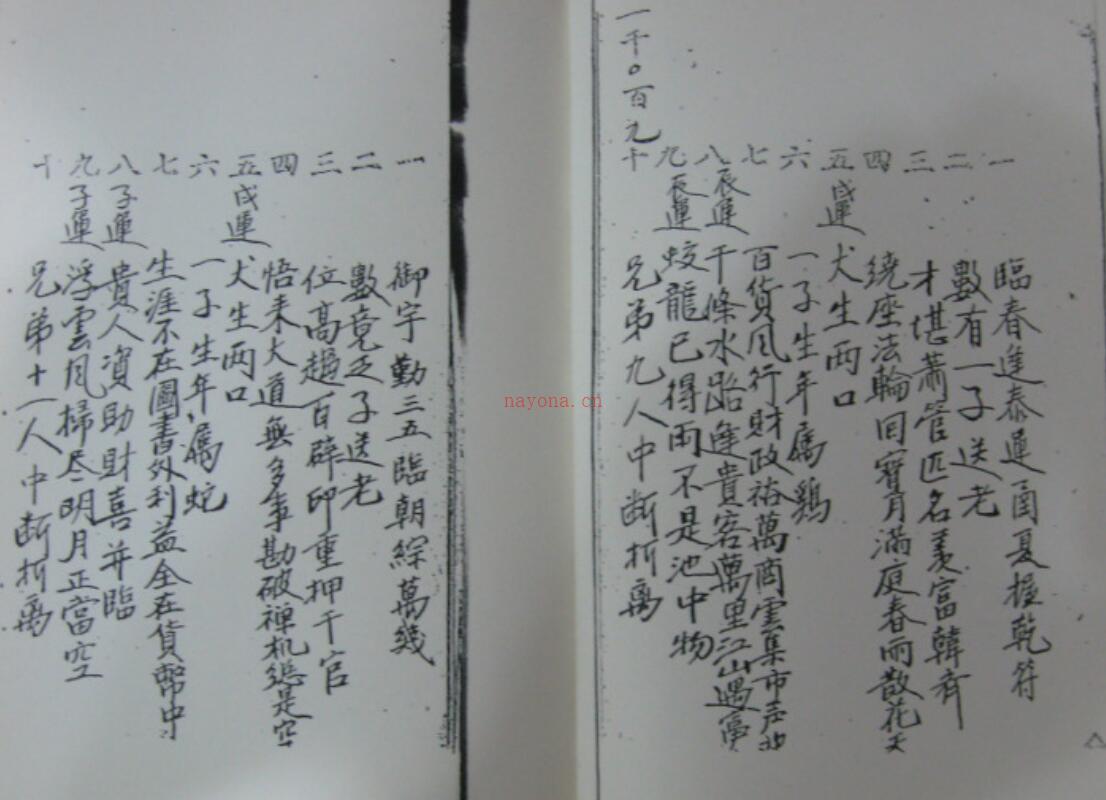 一千〇百九十
一 臨春逢泰運國夏握乾符
二 數有一子送老
三 才堪蕭管匹名羡富韓齊
四 繞座法輪回寶月滿庭春雨散花天
五 戌運 犬生两口
六 一子生年属鷄
七 百貨风行財政裕萬商雲集市声
八 辰運 千條水路逢貴客萬里江山遇
九 辰運 蛟龍已得雨不是池中物
十 兄弟九人中断折离
一 御宇勤三五臨朝綜萬幾
二 數竟乏子送老
三 位高趨百辟印重押千官
四 悟来大道無多事勘破禅机總是空
五 戌運 犬生两口
六 一子生年属蛇
七 生涯不在圖書外利益全在貨幣中
八 子運 貴人資助財喜并臨
九 子運 浮雲风掃尽明月正當空
十 兄弟十一人中断折离
nayona.cn